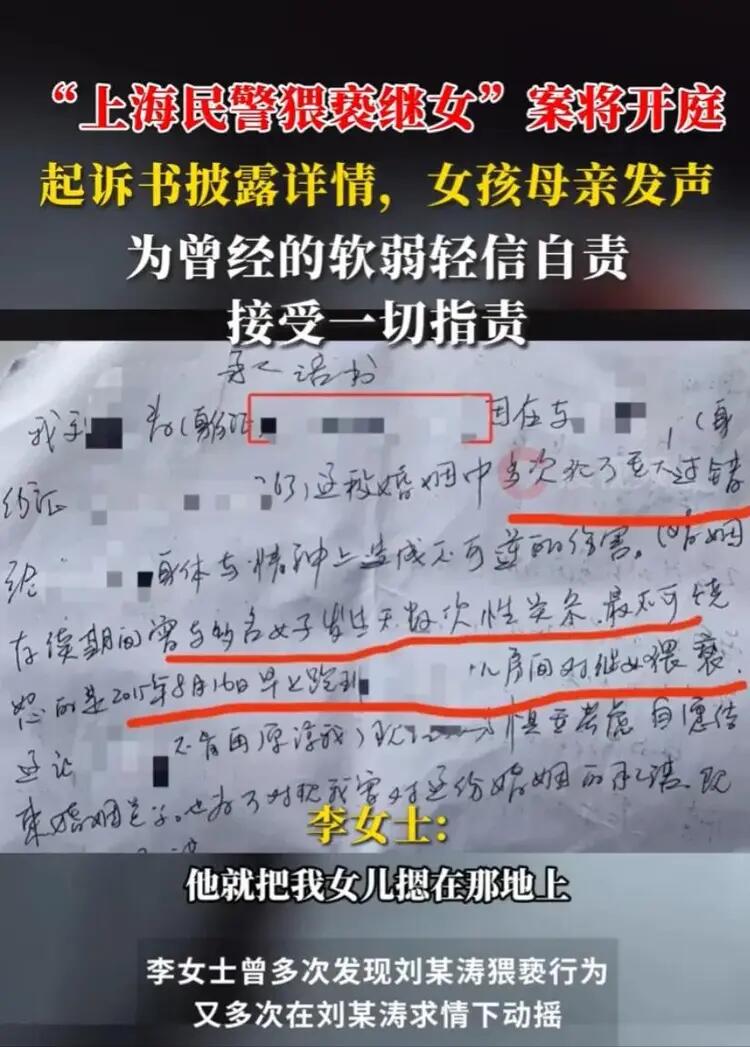 “上海民警猥亵继女”案将开庭
起诉书披露详情，女孩母亲发声
为曾经的软弱轻信自责
接受一切指责
承诺书
我 因在与 ，(身
份证 这段婚姻中多次犯了重大过错
给 身体与精神上造成不可逆的伤害。(婚姻
存续期间曾与多名女子发生无数次性关系，最不可饶
恕的是2015年8月16日早上跑到 房间对继女猥亵
不肯再原谅我) 慎重考虑自愿结
束婚姻关系。也为了
李女士：
他就把我女儿摁在那地上
李女士曾多次发现刘某涛猥亵行为
又多次在刘某涛求情下动摇